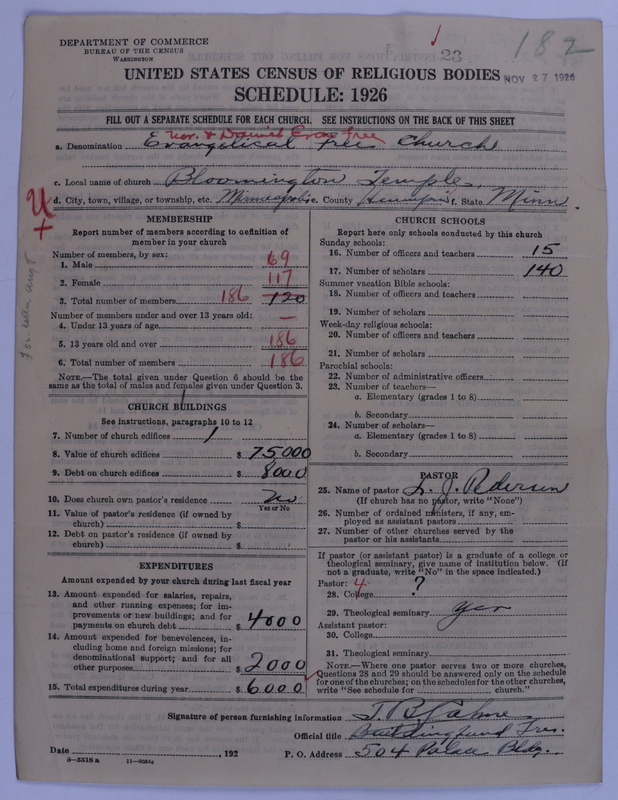 DEPARTMENT OF COMMERCE
BUREAU OF THE CENSUS
WASHINGTON
23
182
UNITED STATES CENSUS OF RELIGIOUS BODIES NOV 27 1926
SCHEDULE: 1926
FILL OUT A SEPARATE SCHEDULE FOR EACH CHURCH. SEE INSTRUCTIONS ON THE BACK OF THIS SHEET
Nor. & Danish Evan. Free
a. Denomination Evangelical Free Church
c. Local name of church Bloomington Temple
d. City, town, village, or township, etc. Minneapolis e. County Hennepin f. State Minn
MEMBERSHIP
Report number of members according to definition of
member in your church
Number of members, by sex:
1. Male 69
2. Female 117
3. Total number of members 186 120
Number of members under and over 13 years old:
4. Under 13 years of age —
5. 13 years old and over 186
6. Total number of members 186
NOTE.—The total given under Question 6 should be the
same as the total of males and females given under Question 3.
CHURCH BUILDINGS
See instructions, paragraphs 10 to 12
7. Number of church edifices 1
8. Value of church edifices $ 75000
9. Debt on church edifices $ 8000
10. Does church own pastor's residence No
Yes or No
11. Value of pastor's residence (if owned by
church) $
12. Debt on pastor's residence (if owned by
church) $
EXPENDITURES
Amount expended by your church during last fiscal year
13. Amount expended for salaries, repairs,
and other running expenses; for im-
provements or new buildings; and for
payments on church debt $ 4000
14. Amount expended for benevolences, in-
cluding home and foreign missions; for
denominational support; and for all
other purposes $ 2000
15. Total expenditures during year $ 6000
CHURCH SCHOOLS
Report here only schools conducted by this church
Sunday schools:
16. Number of officers and teachers 15
17. Number of scholars 140
Summer vacation Bible schools:
18. Number of officers and teachers
19. Number of scholars
Week-day religious schools:
20. Number of officers and teachers
21. Number of scholars
Parochial schools:
22. Number of administrative officers
23. Number of teachers—
a. Elementary (grades 1 to 8)
b. Secondary
24. Number of scholars—
a. Elementary (grades 1 to 8)
b. Secondary
PASTOR
25. Name of pastor L. J. Pedersen
(If church has no pastor, write "None")
26. Number of ordained ministers, if any, em-
ployed as assistant pastors
27. Number of other churches served by the
pastor or his assistants
If pastor (or assistant pastor) is a graduate of a college or
theological seminary, give name of institution below. (If
not a graduate, write "No" in the space indicated.)
Pastor: 4
28. College ?
29. Theological seminary yes
Assistant pastor:
30. College
31. Theological seminary
NOTE.—Where one pastor serves two or more churches,
Questions 28 and 29 should be answered only on the schedule
for one of the churches; on the schedules for the other churches,
write "See schedule for church."
Signature of person furnishing information
Official title Building fund Tres.
Date , 192 P. O. Address 504 Palace Bldg.
8—5518 a 11—9054c